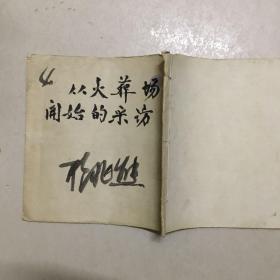 4
从火葬场
開始的采访